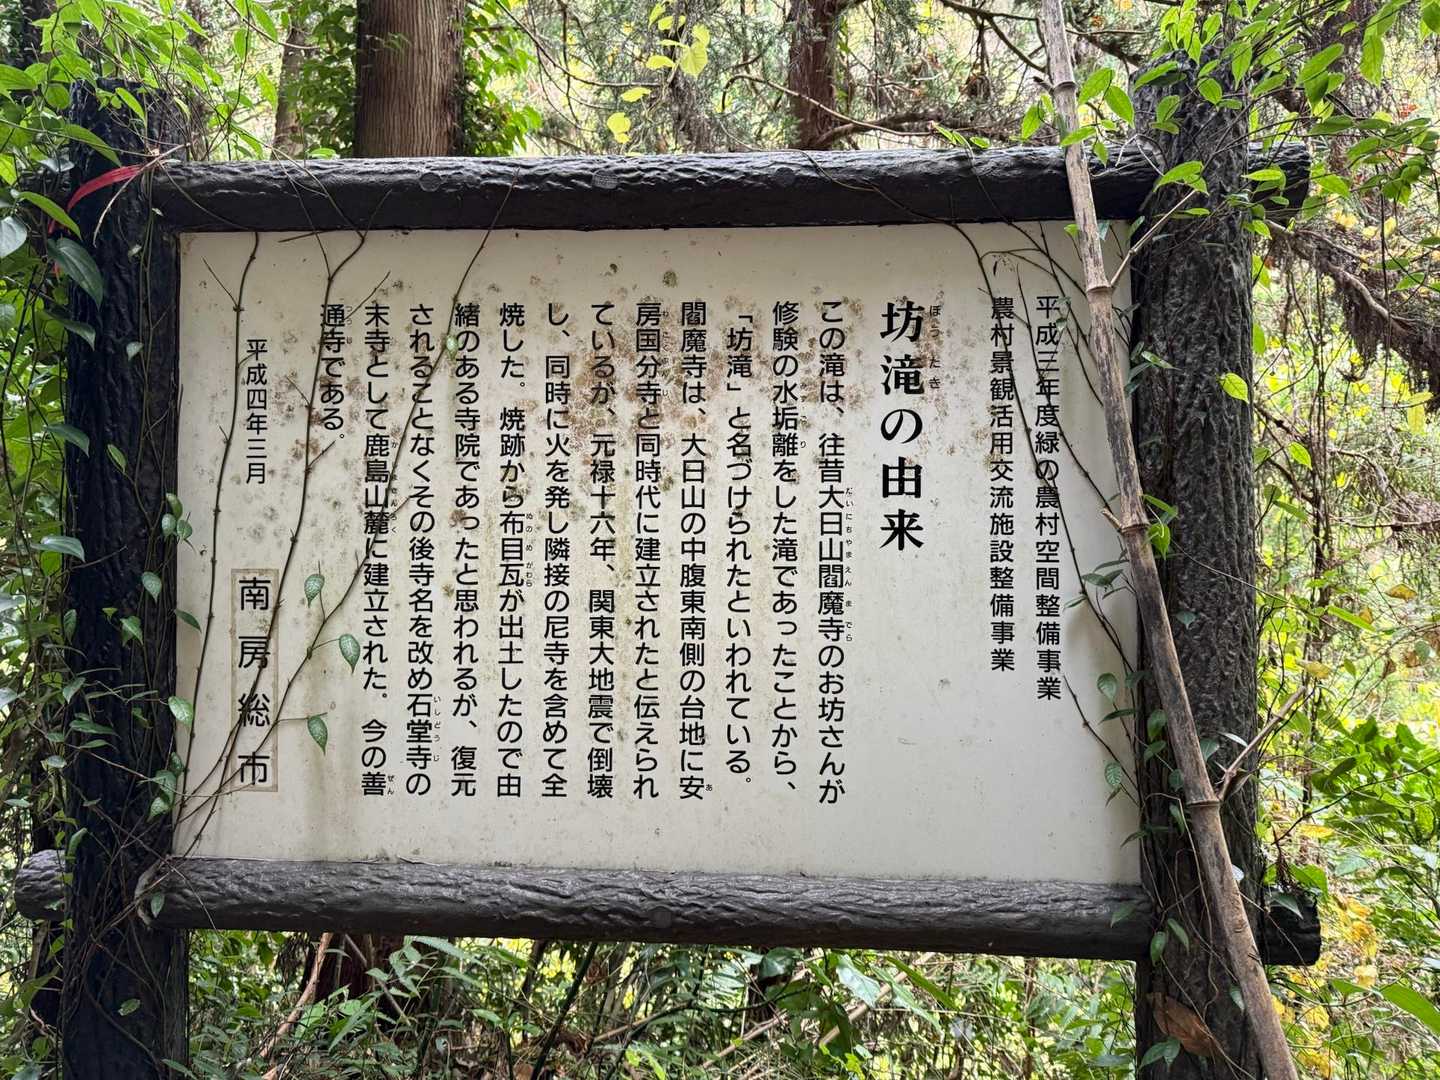 平成三年度緑の農村空間整備事業
農村景観活用交流施設整備事業
坊滝の由来
ぼう たき
この滝は、往昔大日山閻魔寺のお坊さんが
だいにちやまえんまでら
修験の水垢離をした滝であったことから、
みずごり
「坊滝」と名づけられたといわれている。
閻魔寺は、大日山の中腹東南側の台地に安
あ
房国分寺と同時代に建立されたと伝えられ
わこくぶんじ
ているが、元禄十六年、関東大地震で倒壊
し、同時に火を発し隣接の尼寺を含めて全
焼した。焼跡から布目瓦が出土したので由
ぬのめがわら
緒のある寺院であったと思われるが、復元
されることなくその後寺名を改め石堂寺の
いしどうじ
末寺として鹿島山麓に建立された。今の善
かしまさんろく ぜん
通寺である。
つうじ
平成四年三月
南房総市